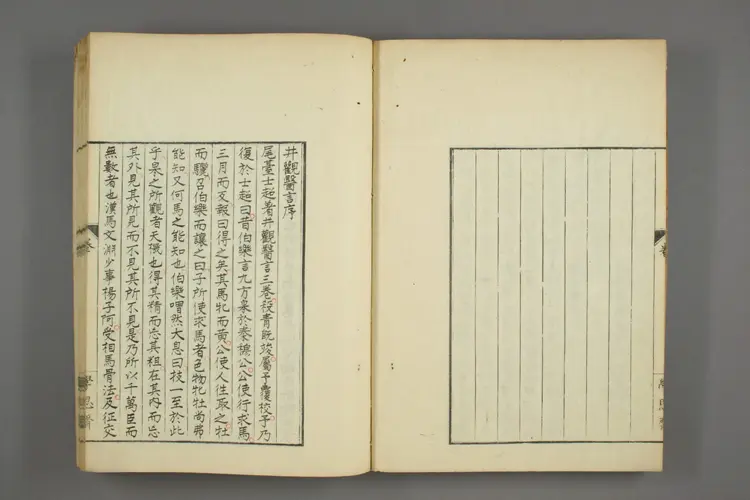 井觀醫言序
尾臺士超著井觀醫言三卷殺青既竣屬予覆校予乃
復於士超曰昔伯樂言九方皋於秦穆公公使行求馬
三月而反報曰得之矣其馬牝而黃公使人往取之牡
而驪召伯樂而讓之曰子所使求馬者色物牝牡尚弗
能知又何馬之能知也伯樂喟然大息曰技一至於此
乎皋之所觀者天機也得其精而忘其粗在其內而忘
其外見其所見而不見其所不見是乃所以千萬臣而
無數者也漢馬文淵少事楊子阿受相馬骨法及征交